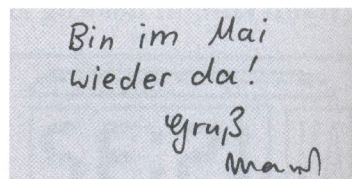 Bin im Mai
wieder da!
Gruß